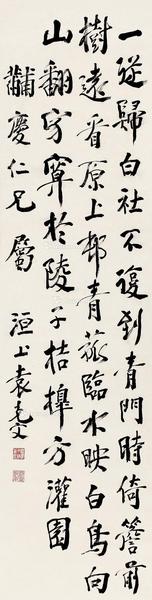 一從歸白社不復到青門時倚簷前
樹遠看原上邨青菰臨水映白鳥向
山翻寂寞於陵子桔槔方灌園
黼慶仁兄屬 洹上袁克文